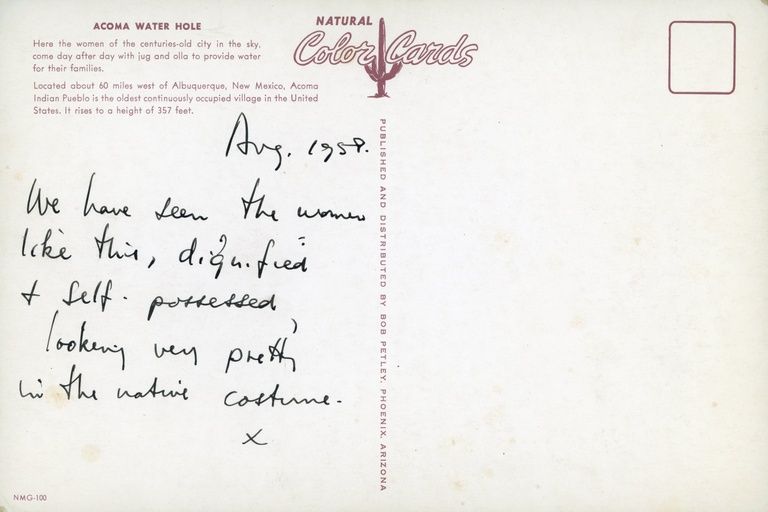 ACOMA WATER HOLE
Here the women of the centuries-old city in the sky,
come day after day with jug and olla to provide water
for their families.
Located about 60 miles west of Albuquerque, New Mexico, Acoma
Indian Pueblo is the oldest continuously occupied village in the United
States. It rises to a height of 357 feet.
NATURAL
Color Cards
PUBLISHED AND DISTRIBUTED BY BOB PETLEY, PHOENIX, ARIZONA
Aug. 1958.
We have seen the women
like this, dignified
+ self-possessed,
looking very pretty
in the native costume.
x
NMG-100